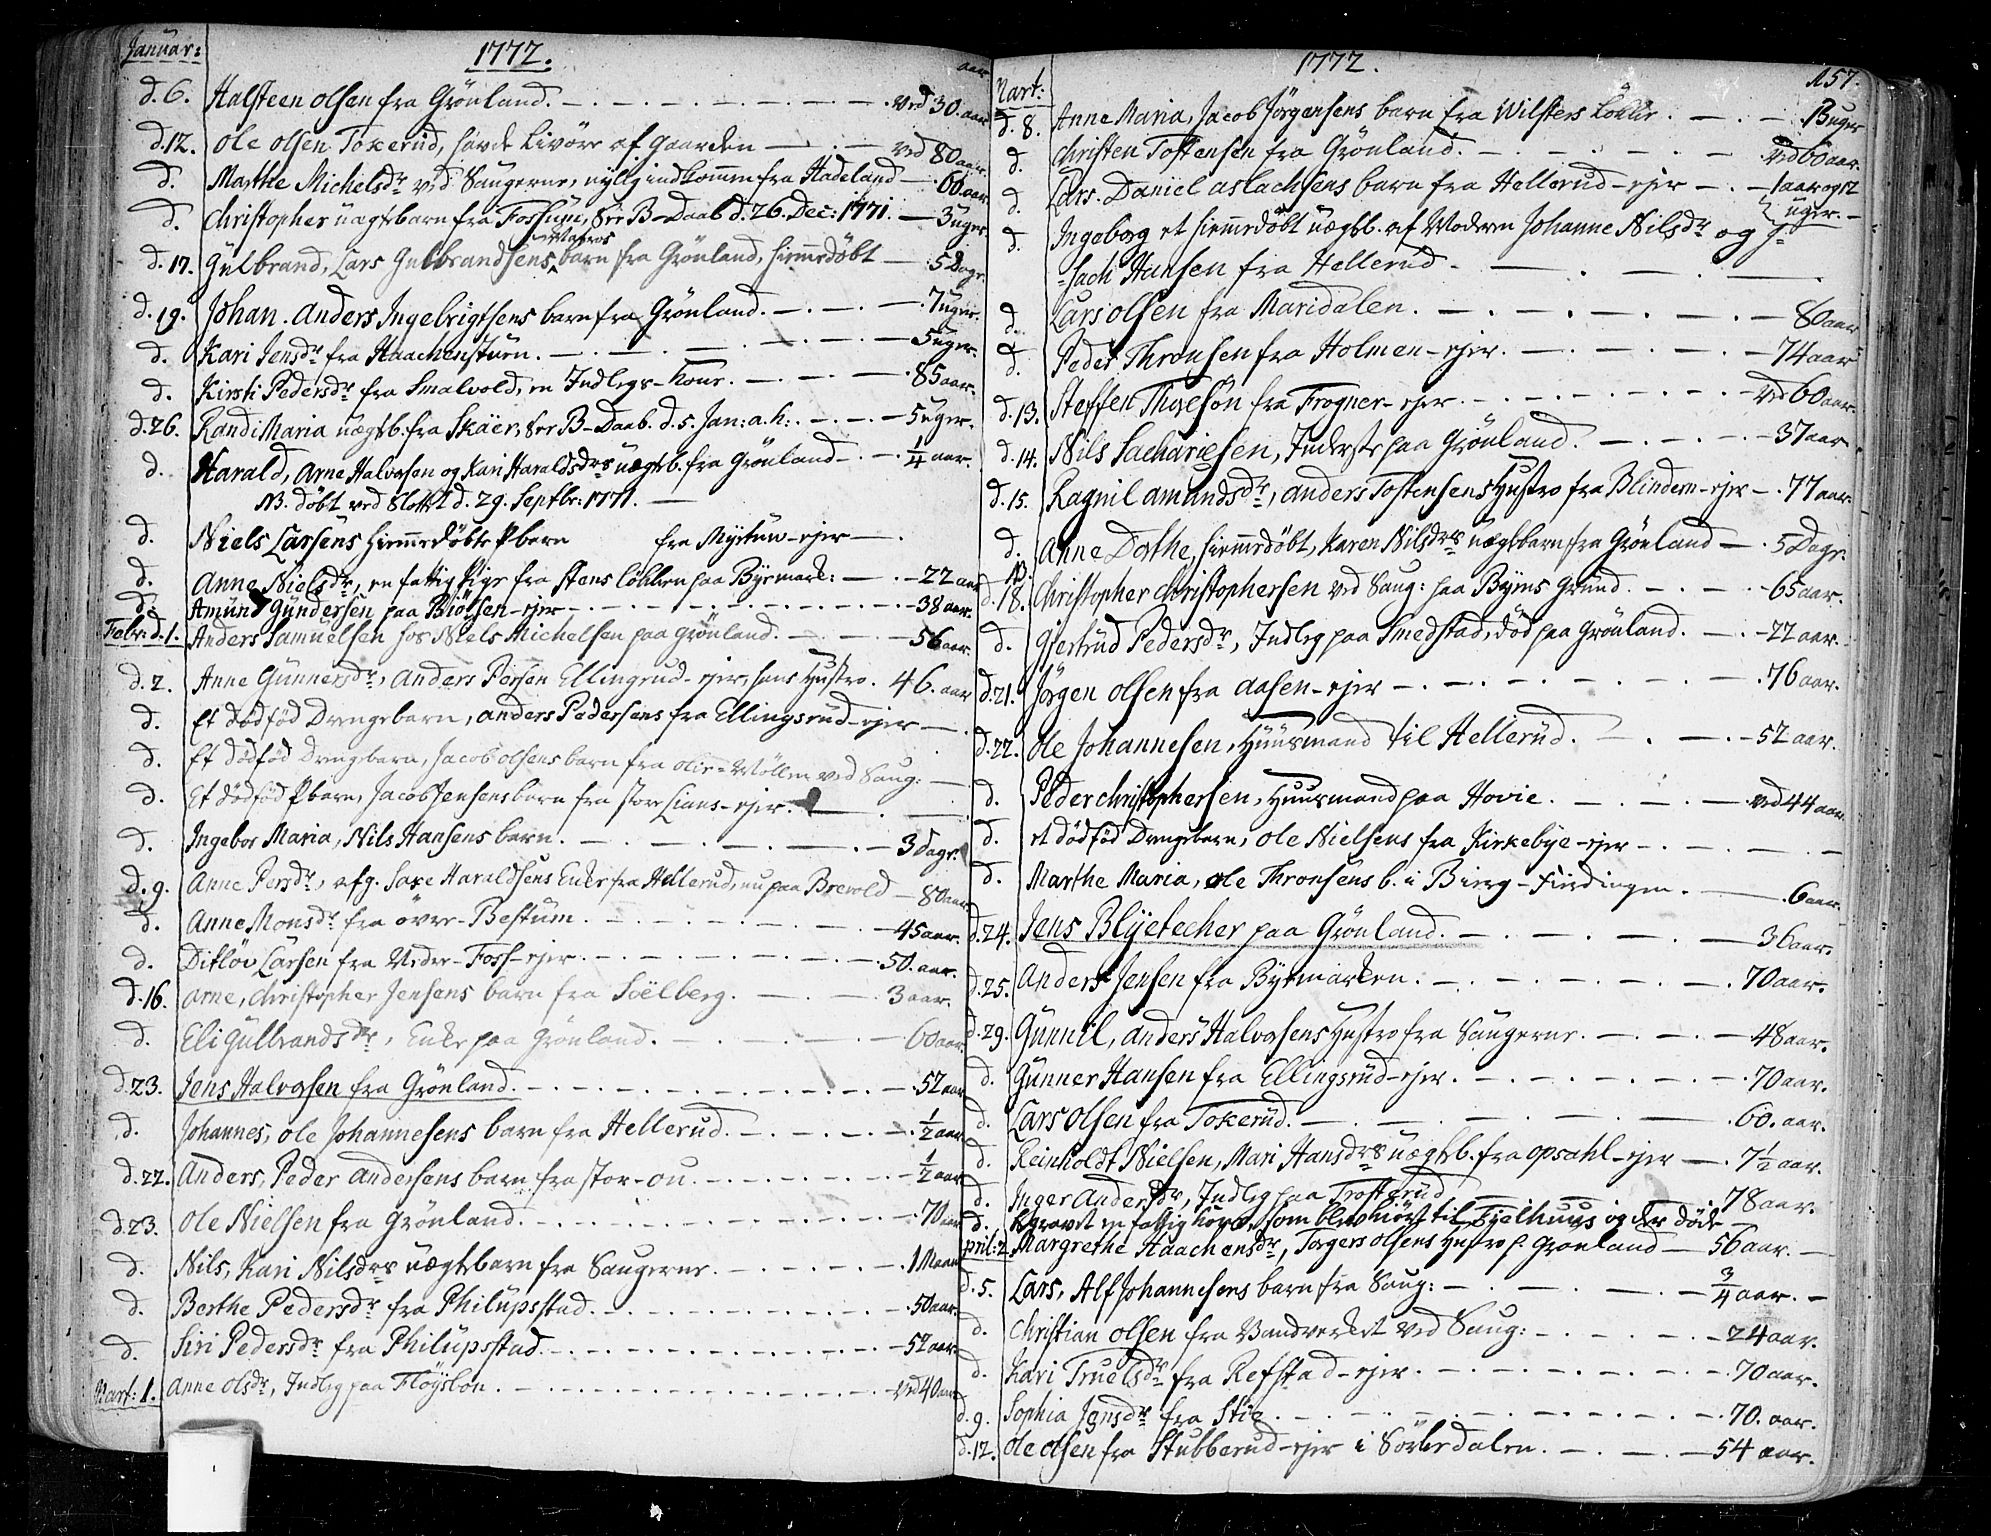 Januar:
1772.
aar
d. 6. Halsteen olsen fra Grönland. ved 30. aar
d. 12. Ole olsen Tokerud, havde Livöre af gaarden ved 80 aar.
d. Marthe Michelsdr ved Saugerne, nylig indkommen fra Hadeland 60 aar.
d. Christopher uægtebarn fra Fossum, See B-Daab d. 26. Dec: 1771. 3 uger.
Matros
d. 17. Gulbrand, Lars Gulbrandsens barn fra Grönland, hiemmedöbt 5 Dage.
d. 19. Johan. Anders Ingebrigtsens barn fra Grönland. 7 uger.
d. Kari Jensdr fra Haachenstuen. 5 uger.
d. Kirsti Pedersdr fra Smalvold, en Indlegs-Kone. 85 aar.
d. 26. Randi Maria uægtb. fra Skäer, See B-Daab. d. 5. Jan: a. h: 5 uger.
d. Harald, Arne Halvorsen og Kari Haraldsdrs uægtb. fra Grönland 1/4 aar.
NB. döbt ved Slottet d. 29. Septbr: 1771.
d. Niels Larsens hiemmedöbte Pbarn fra Mystuw-ejer
d. Anne Nielsdr, en fattig Pige fra Stens lökken paa Byemark: 22 aar
d. Amund Gundersen paa Biölsen-ejer 38 aar.
Febr: d. 1. Anders Samuelsen hos Niels Michelsen paa Grönland. 56 aar.
d. 2. Anne Gunnersdr, Anders Persen Ellingrud-ejer, hans Hustro. 46. aar
d. Et dödföd Drengebarn, Anders Pedersens fra Ellingsrud-ejer
d. Et dödföd Drengebarn, Jacob olsens barn fra olie-Möllen ved Saug:
d. Et dödföd Pbarn, Jacob Jensens barn fra store Lians-ejer.
d. Ingebor Maria, Nils Hansens barn. 3 Dage.
d. 9. Anne Persdr, afg. Saxe Haraldsens Enke fra Hellerud, nu paa Brevold 80 aar.
d. Anne Monsdr fra övre-Bestum. 45 aar.
d. Ditlöv Larsen fra Neder-Foss-ejer. 50. aar.
d. 16. Arne, Christopher Jensens barn fra Soelberg. 3 aar.
d. Eli Gulbrandsdr, Enke paa Grönland. 60 aar.
d. 23. Jens Halvorsen fra Grönland. 52 aar
d. Johannes, Ole Johannesens barn fra Hellerud. 1/2 aar
d. 22. Anders, Peder Andersens barn fra stor-ou. 1/2 aar
d. 23. Ole Nielsen fra Grönland. 70 aar
d. Nils, Kari Nilsdrs uægtebarn fra Saugerne. 1 Maan
d. Berthe Pedersdr fra Philupsstad. 50 aar.
d. Siri Pedersdr fra Philupsstad. 52 aar.
Mart: 1. Anne Olsdr, Indleg paa Flöysbon. ved 40 aar
1772.
157.
Mart:
d. 8. Anne Maria, Jacob Jörgensens barn fra Wilsters Lökke. 13 uger
d. Christen Tostensen fra Grönland. ved 60 aar.
d. Lars. Daniel Aslachsens barn fra Hellerud-ejer 1 aar og 12
uger.
d. Ingeborg et hiemmedöbt uægtb. af Moderen Johanne Nilsdr og J-
=sach Hansen fra Hellerud.
d. Lars olsen fra Maridalen. 80 aar
d. Peder Thronsen fra Holmen-ejer. 74 aar
d. 13. Steffen Thoresön fra Frogner-ejer. ved 60 aar.
d. 14. Nils Sachariesen, Inderste paa Grönland. 37 aar.
d. 15. Ragnil Amundsdr, Anders Tostensens Hustro fra Blindern-ejer 77 aar.
d. Anne Dorthe, hiemmedöbt, Karen Nilsdrs uægtebarn fra Grönland 5 Dage.
NB.
d. 18. Christopher Christophersen ved Saug: paa Byens Grund. 65 aar.
d. Gjertrud Pedersdr, Indleg paa Smedstad, död paa Grönland. 22 aar.
d. 21. Jörgen olsen fra Aasen-ejer 76 aar.
d. 22. Ole Johannesen, Huusmand til Hellerud. 52 aar.
d. Peder Christophersen, Huusmand paa Hovie. ved 44 aar.
d. et dödföd Drengebarn, Ole Nielsens fra Kirkebye-ejer
d. Marthe Maria, Ole Thronsens b. i Bierg-Findingen. 6 aar.
d. 24. Jens Blyetecher paa Grönland. 36 aar.
d. 25. Anders Jensen fra Byemarken. 70 aar.
d. 29. Gunnil, Anders Halvorsens Hustro fra Saugerne. 48 aar.
d. Gunner Hansen fra Ellingsrud-ejer. 70 aar.
d. Lars olsen fra Tokerud. 60. aar.
d. Reinholdt Nielsen, Mari Hansdrs uægtb. fra opsahl-ejer 7 1/2 aar.
d. Inger Andersdr, Indleg paa Trosterud 78 aar.
d. Begravet en fattig Kone, som blev kiört til Tjelhuus og der döde
April: 2. Margrethe Haachensdr, Torgers olsens Hustro p. Grönland 56 aar.
d. 5. Lars, Alf Johannesens barn fra Saug: 3/4 aar.
d. Christian olsen fra Vandverket ved Saug: 24 aar.
d. Kari Truelsdr fra Refstad-ejer. 70 aar.
d. 9. Sophia Jensdr fra Stie. 70. aar.
d. 12. Ole olsen fra Stubberud-ejer i Sörkedalen. 54 aar.